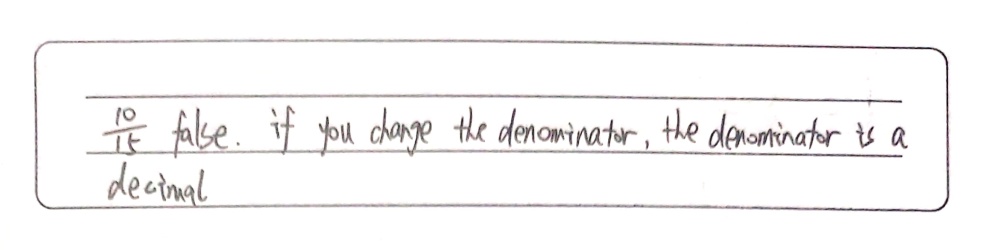 10/15 false. if you change the denominator, the denominator is a
decimal